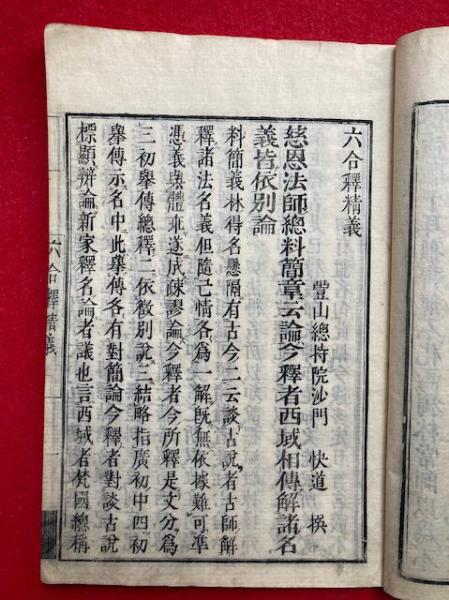 六合釋精義
豐山總持院沙門 快道 撰
慈恩法師總料簡章云論今釋者西域相傳解諸名
義皆依別論
料簡義林得名懸隔有古今二云談古說者古師解
釋諸法名義但隨己情各爲一解既無依據難可準
憑義與體乖遂成疎謬論今釋者今所釋是文分爲
三初舉傳總釋二依徵別說三結略指廣初中四初
舉傳示名中此舉傳各有對簡論今釋者對談古說
標顯辨論新家釋名論者議也言西域者梵國總稱
六合釋精義